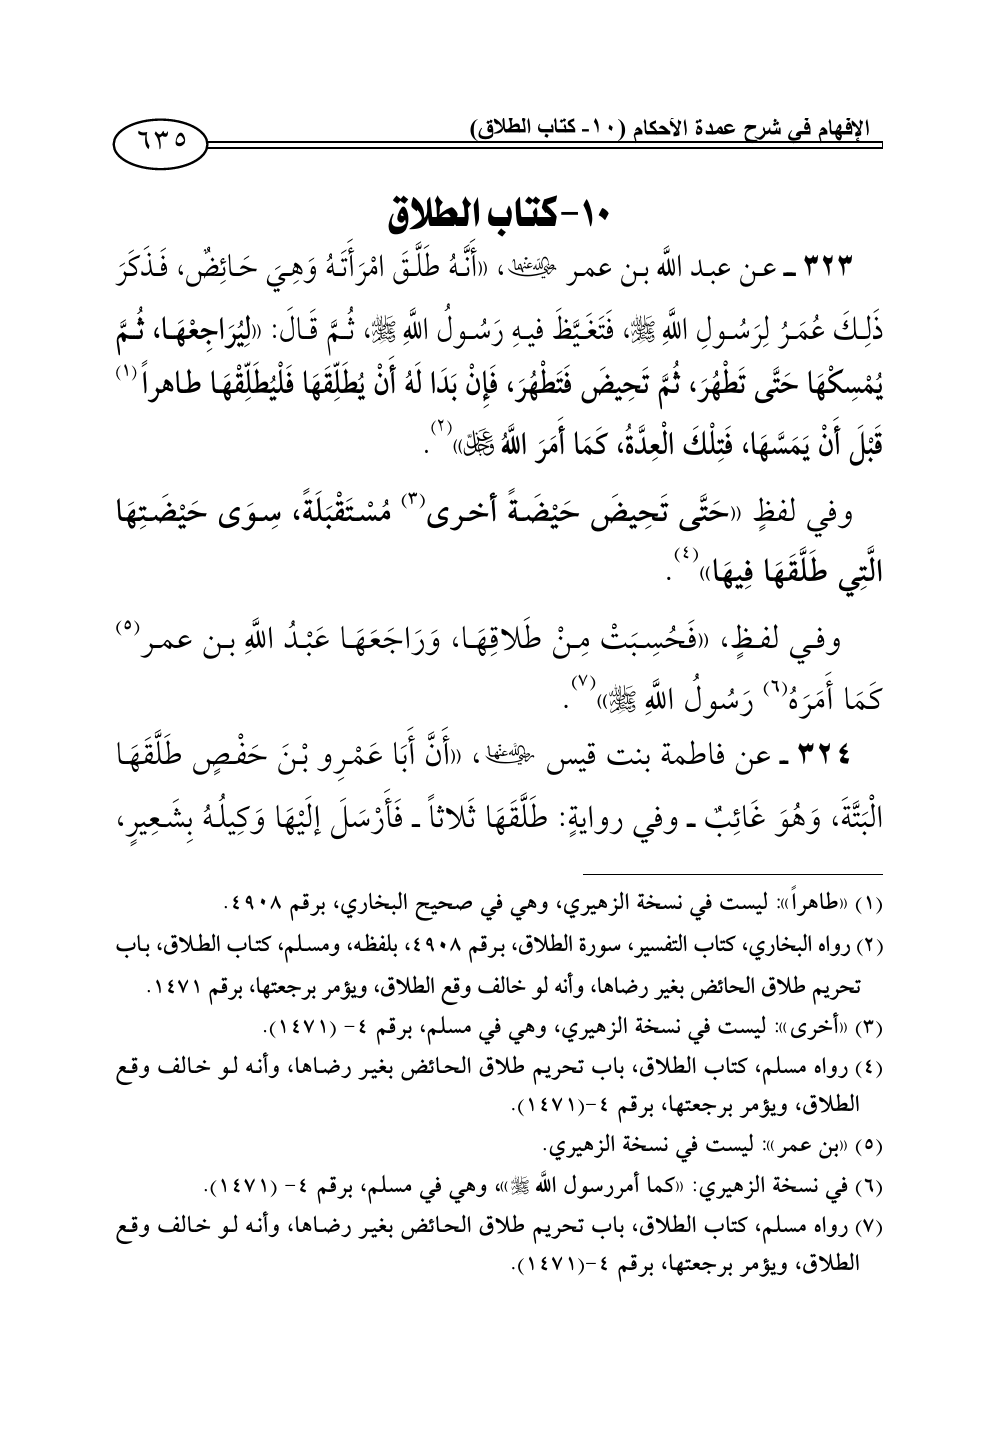 الإفهام في شرح عمدة الأحكام (١٠- كتاب الطلاق)
٦٣٥
١٠-كتاب الطلاق
٣٢٣ ـ عن عبد اللَّه بن عمر رضي الله عنهما، «أَنَّهُ طَلَّقَ امْرَأَتَهُ وَهِيَ حَائِضٌ، فَذَكَرَ
ذَلِكَ عُمَرُ لِرَسُولِ اللَّهِ ﷺ، فَتَغَيَّظَ فيهِ رَسُولُ اللَّهِ ﷺ، ثُمَّ قَالَ: «لِيُرَاجِعْهَا، ثُمَّ
يُمْسِكْهَا حَتَّى تَطْهُرَ، ثُمَّ تَحِيضَ فَتَطْهُرَ، فَإِنْ بَدَا لَهُ أَنْ يُطَلِّقَهَا فَلْيُطَلِّقْهَا طاهراً(١)
قَبْلَ أَنْ يَمَسَّهَا، فَتِلْكَ الْعِدَّةُ، كَمَا أَمَرَ اللَّهُ عز وجل»(٢).
وفي لفظٍ «حَتَّى تَحِيضَ حَيْضَةً أخرى(٣) مُسْتَقْبَلَةً، سِوَى حَيْضَتِهَا
الَّتِي طَلَّقَهَا فِيهَا»(٤).
وفي لفظٍ، «فَحُسِبَتْ مِنْ طَلَاقِهَا، وَرَاجَعَهَا عَبْدُ اللَّهِ بن عمر(٥)
كَمَا أَمَرَهُ(٦) رَسُولُ اللَّهِ ﷺ»(٧).
٣٢٤ ـ عن فاطمة بنت قيس رضي الله عنها، «أَنَّ أَبَا عَمْرِو بْنَ حَفْصٍ طَلَّقَهَا
الْبَتَّةَ، وَهُوَ غَائِبٌ ـ وفي روايةٍ: طَلَّقَهَا ثَلاثاً ـ فَأَرْسَلَ إلَيْهَا وَكِيلُهُ بِشَعِيرٍ،
(١) «طاهراً»: ليست في نسخة الزهيري، وهي في صحيح البخاري، برقم ٤٩٠٨.
(٢) رواه البخاري، كتاب التفسير، سورة الطلاق، برقم ٤٩٠٨، بلفظه، ومسلم، كتاب الطلاق، باب
تحريم طلاق الحائض بغير رضاها، وأنه لو خالف وقع الطلاق، ويؤمر برجعتها، برقم ١٤٧١.
(٣) «أخرى»: ليست في نسخة الزهيري، وهي في مسلم، برقم ٤- (١٤٧١).
(٤) رواه مسلم، كتاب الطلاق، باب تحريم طلاق الحائض بغير رضاها، وأنه لو خالف وقع
الطلاق، ويؤمر برجعتها، برقم ٤-(١٤٧١).
(٥) «بن عمر»: ليست في نسخة الزهيري.
(٦) في نسخة الزهيري: «كما أمررسول اللَّه ﷺ»، وهي في مسلم، برقم ٤- (١٤٧١).
(٧) رواه مسلم، كتاب الطلاق، باب تحريم طلاق الحائض بغير رضاها، وأنه لو خالف وقع
الطلاق، ويؤمر برجعتها، برقم ٤-(١٤٧١).